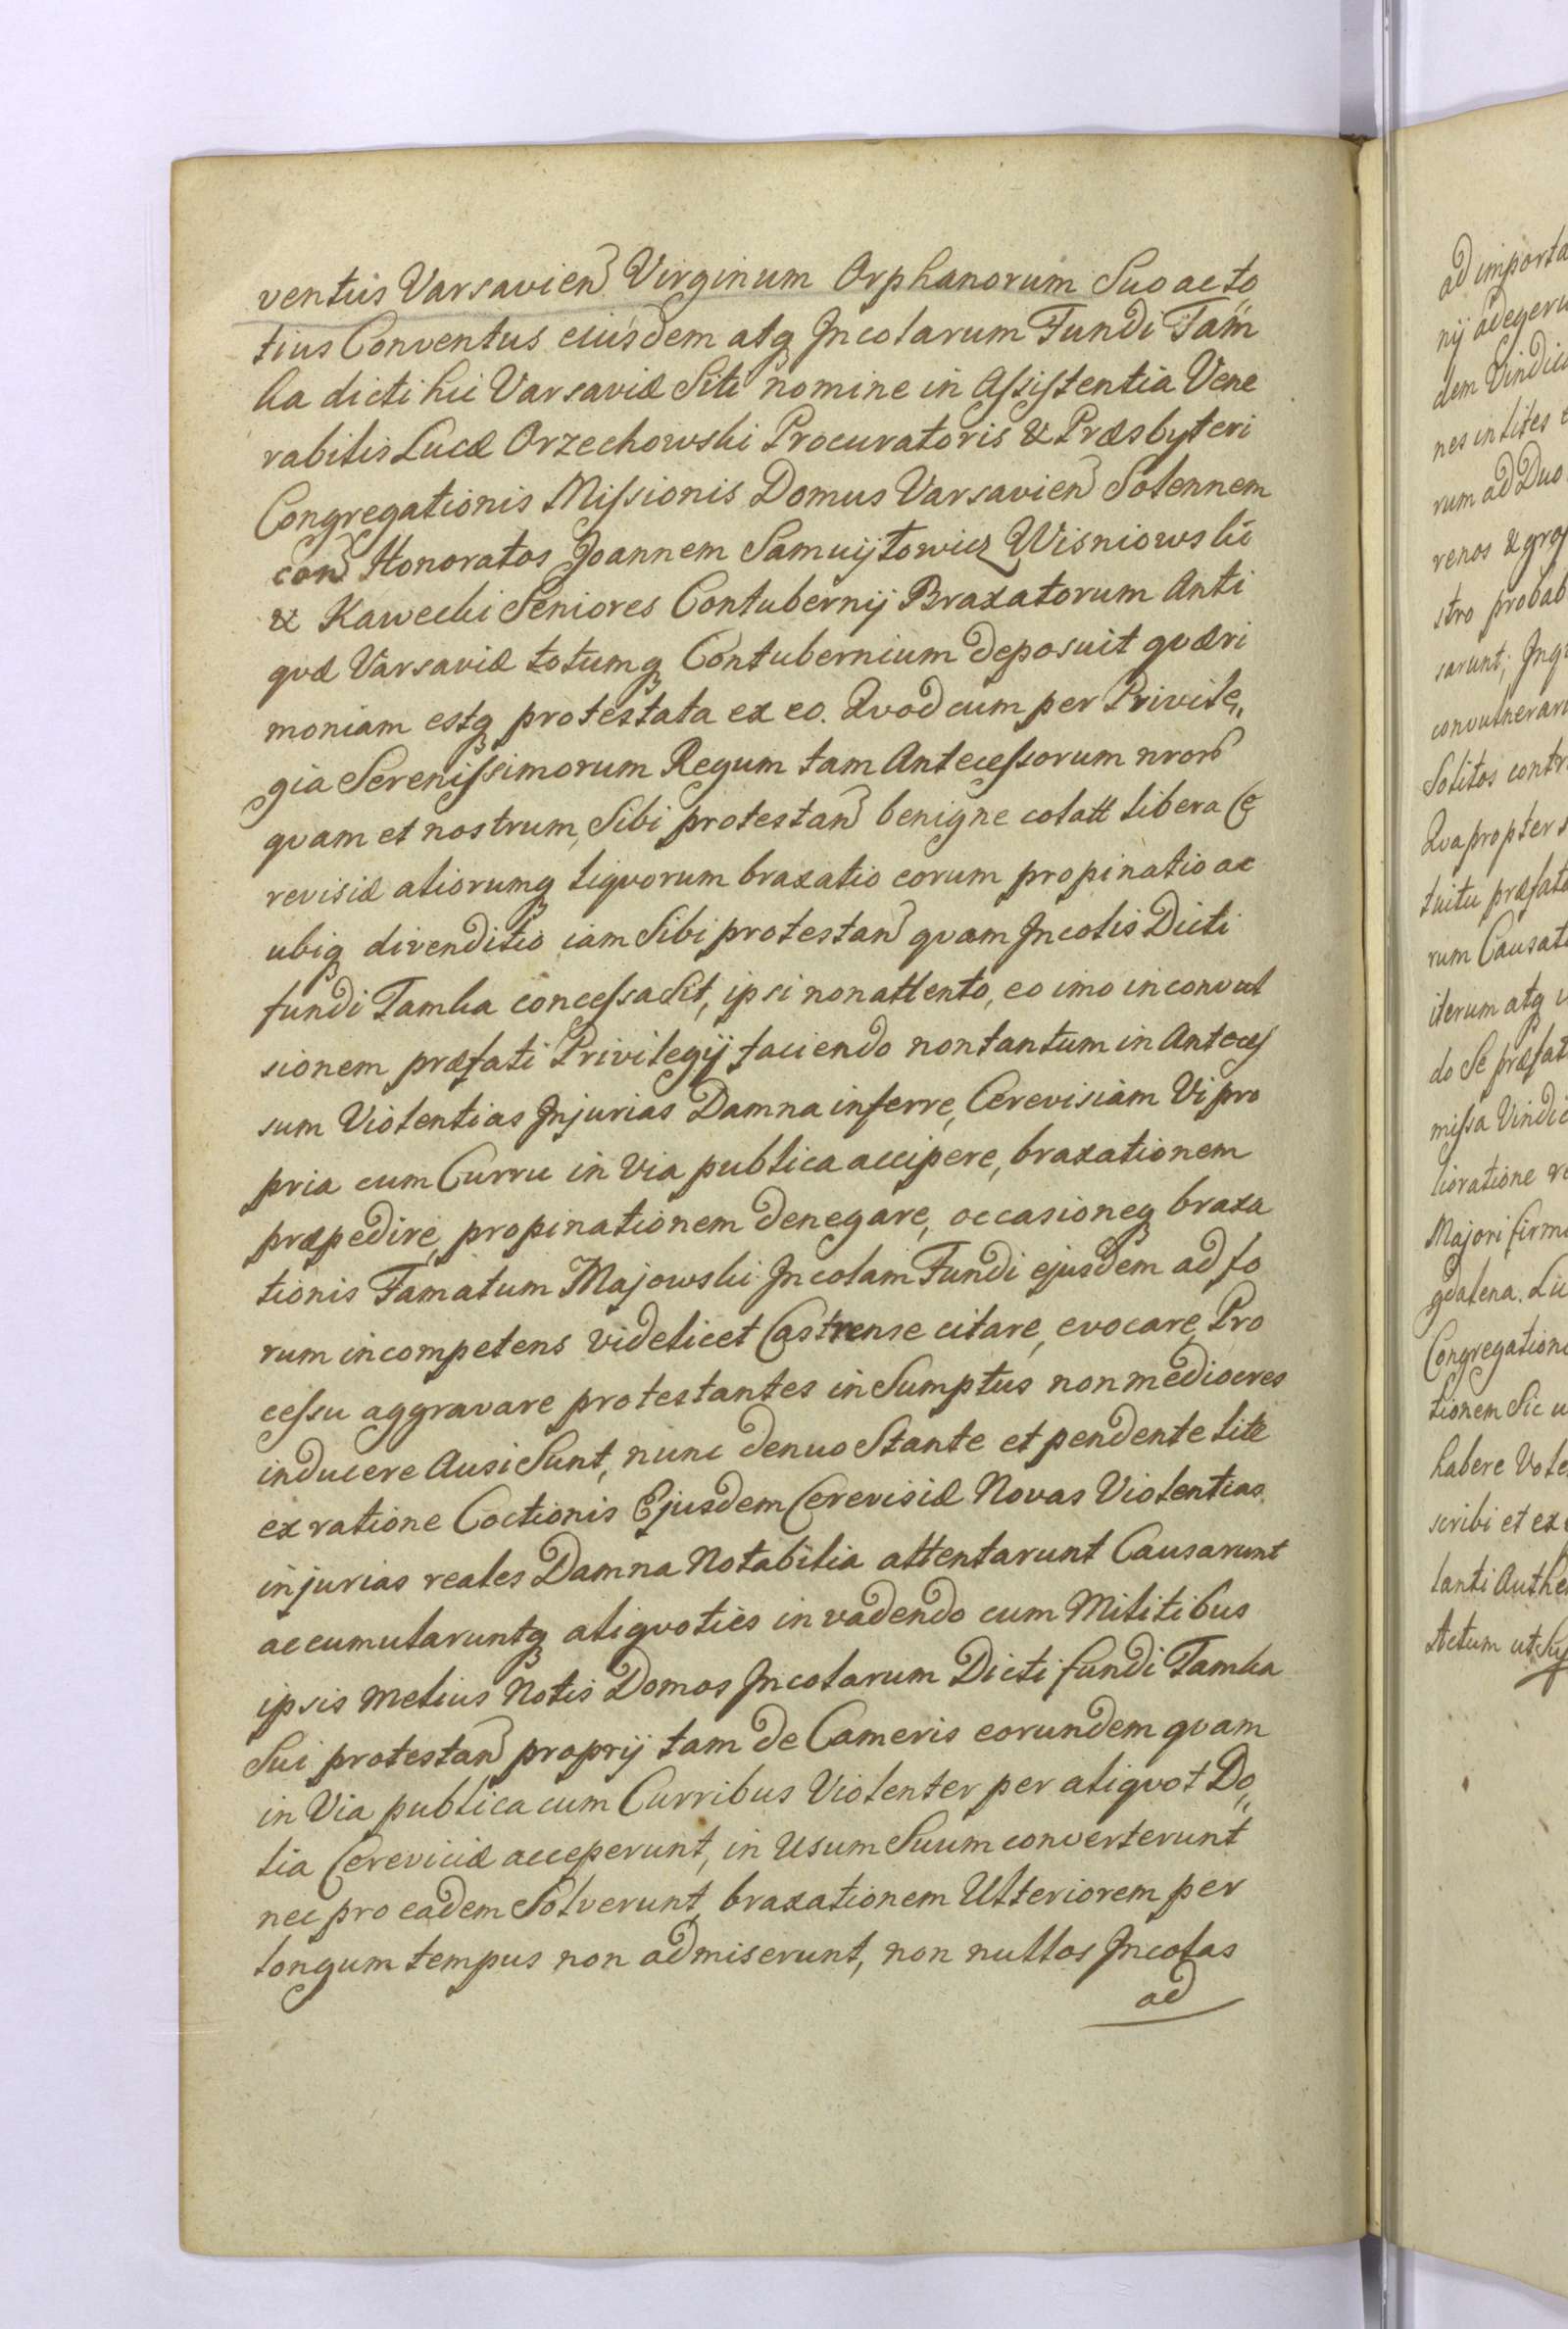 ventus Varsavien Virginum Orphanorum Suo ac to
tius Conventus eiusdem atq Incolarum Fundi Tam
ka dicti hic Varsaviæ Siti nomine in Assistentia Vene
rabilis Lucæ Orzechowski Procuratoris & Præsbyteri
Congregationis Missionis Domus Varsavien Solennem
con Honoratos Joannem Samuijłowicz Wisniowski
& Kawecki Seniores Contubernij Braxatorum Anti
qvæ Varsaviæ totumq Contubernium deposuit qværi
moniam estq protestata ex eo. Qvod cum per Privile„
gia Serenissimorum Regum tam Antecessorum nrorb
qvam et nostrum, Sibi protestan benigne colatt libera Ce
revisiæ aliorumq liqvorum braxatio eorum propinatio ac
ubiq divenditio iam Sibi protestan qvam Incolis Dicti
fundi Tamka concessa Sit, ipsi non attento, eo imo in convul
sionem præfati Privilegij faciendo non tantum in Anteces
sum Violentias Injurias Damna inferre, Cerevisiam Vi pro
pria cum Curru in Via publica accipere, braxationem
præpedire, propinationem denegare, occasioneq braxa
tionis Famatum Majowski Incolam Fundi ejusdem ad fo
rum incompetens videlicet Castrense citare, evocare, Pro
cessu aggravare protestantes in Sumptus non mediocres
inducere Ausi Sunt, nunc denuo Stante et pendente lite
ex ratione Coctionis Ejusdem Cerevisiæ Novas Violentias
injurias reales Damna Notabilia attentarunt Causarunt
accumularuntq aliqvoties invadendo cum Militibus
ipsis melius Notis Domos Incolarum Dicti fundi Tamka
Sui protestan proprij tam de Cameris eorundem qvam
in Via publica cum Curribus Violenter per aliqvot Do„
lia Cereviciæ acceperunt, in Usum Suum converterunt
nec pro eadem Solverunt, braxationem Ulteriorem per
longum tempus non admiserunt, non nullos Incolas
ad
ad importa
nij adegeru
dem Vindic
nes in lites
rum ad Duo
renos & gros
stro probab
sarunt; Inq
convulnerar
Solitos contr
Qvapropter s
tuitu præfat
rum Causat
iterum atq
do Se præfat
missa Vindic
lioratione re
Majori firm
gdalena. Lu
Congregation
tionem Sic u
habere Vole
scribi et ex
lanti Authe
Actum ut Sup